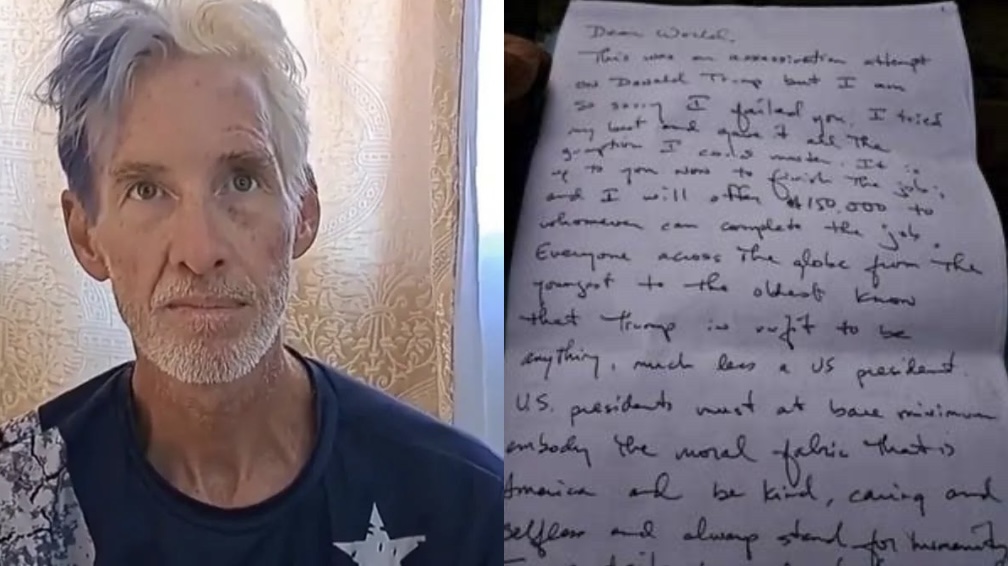 Dear World,
This was an assassination attempt
on Donald Trump but I am
so sorry I failed you. I tried
my best and gave it all the
gumption I could muster. It is
up to you now to finish the job;
and I will offer $150,000 to
whomever can complete the job.
Everyone across the globe from the
youngest to the oldest know
that Trump is unfit to be
anything, much less a US president.
U.S. presidents must at bare minimum
embody the moral fabric that is
America and be kind, caring and
selfless and always stand for humanity